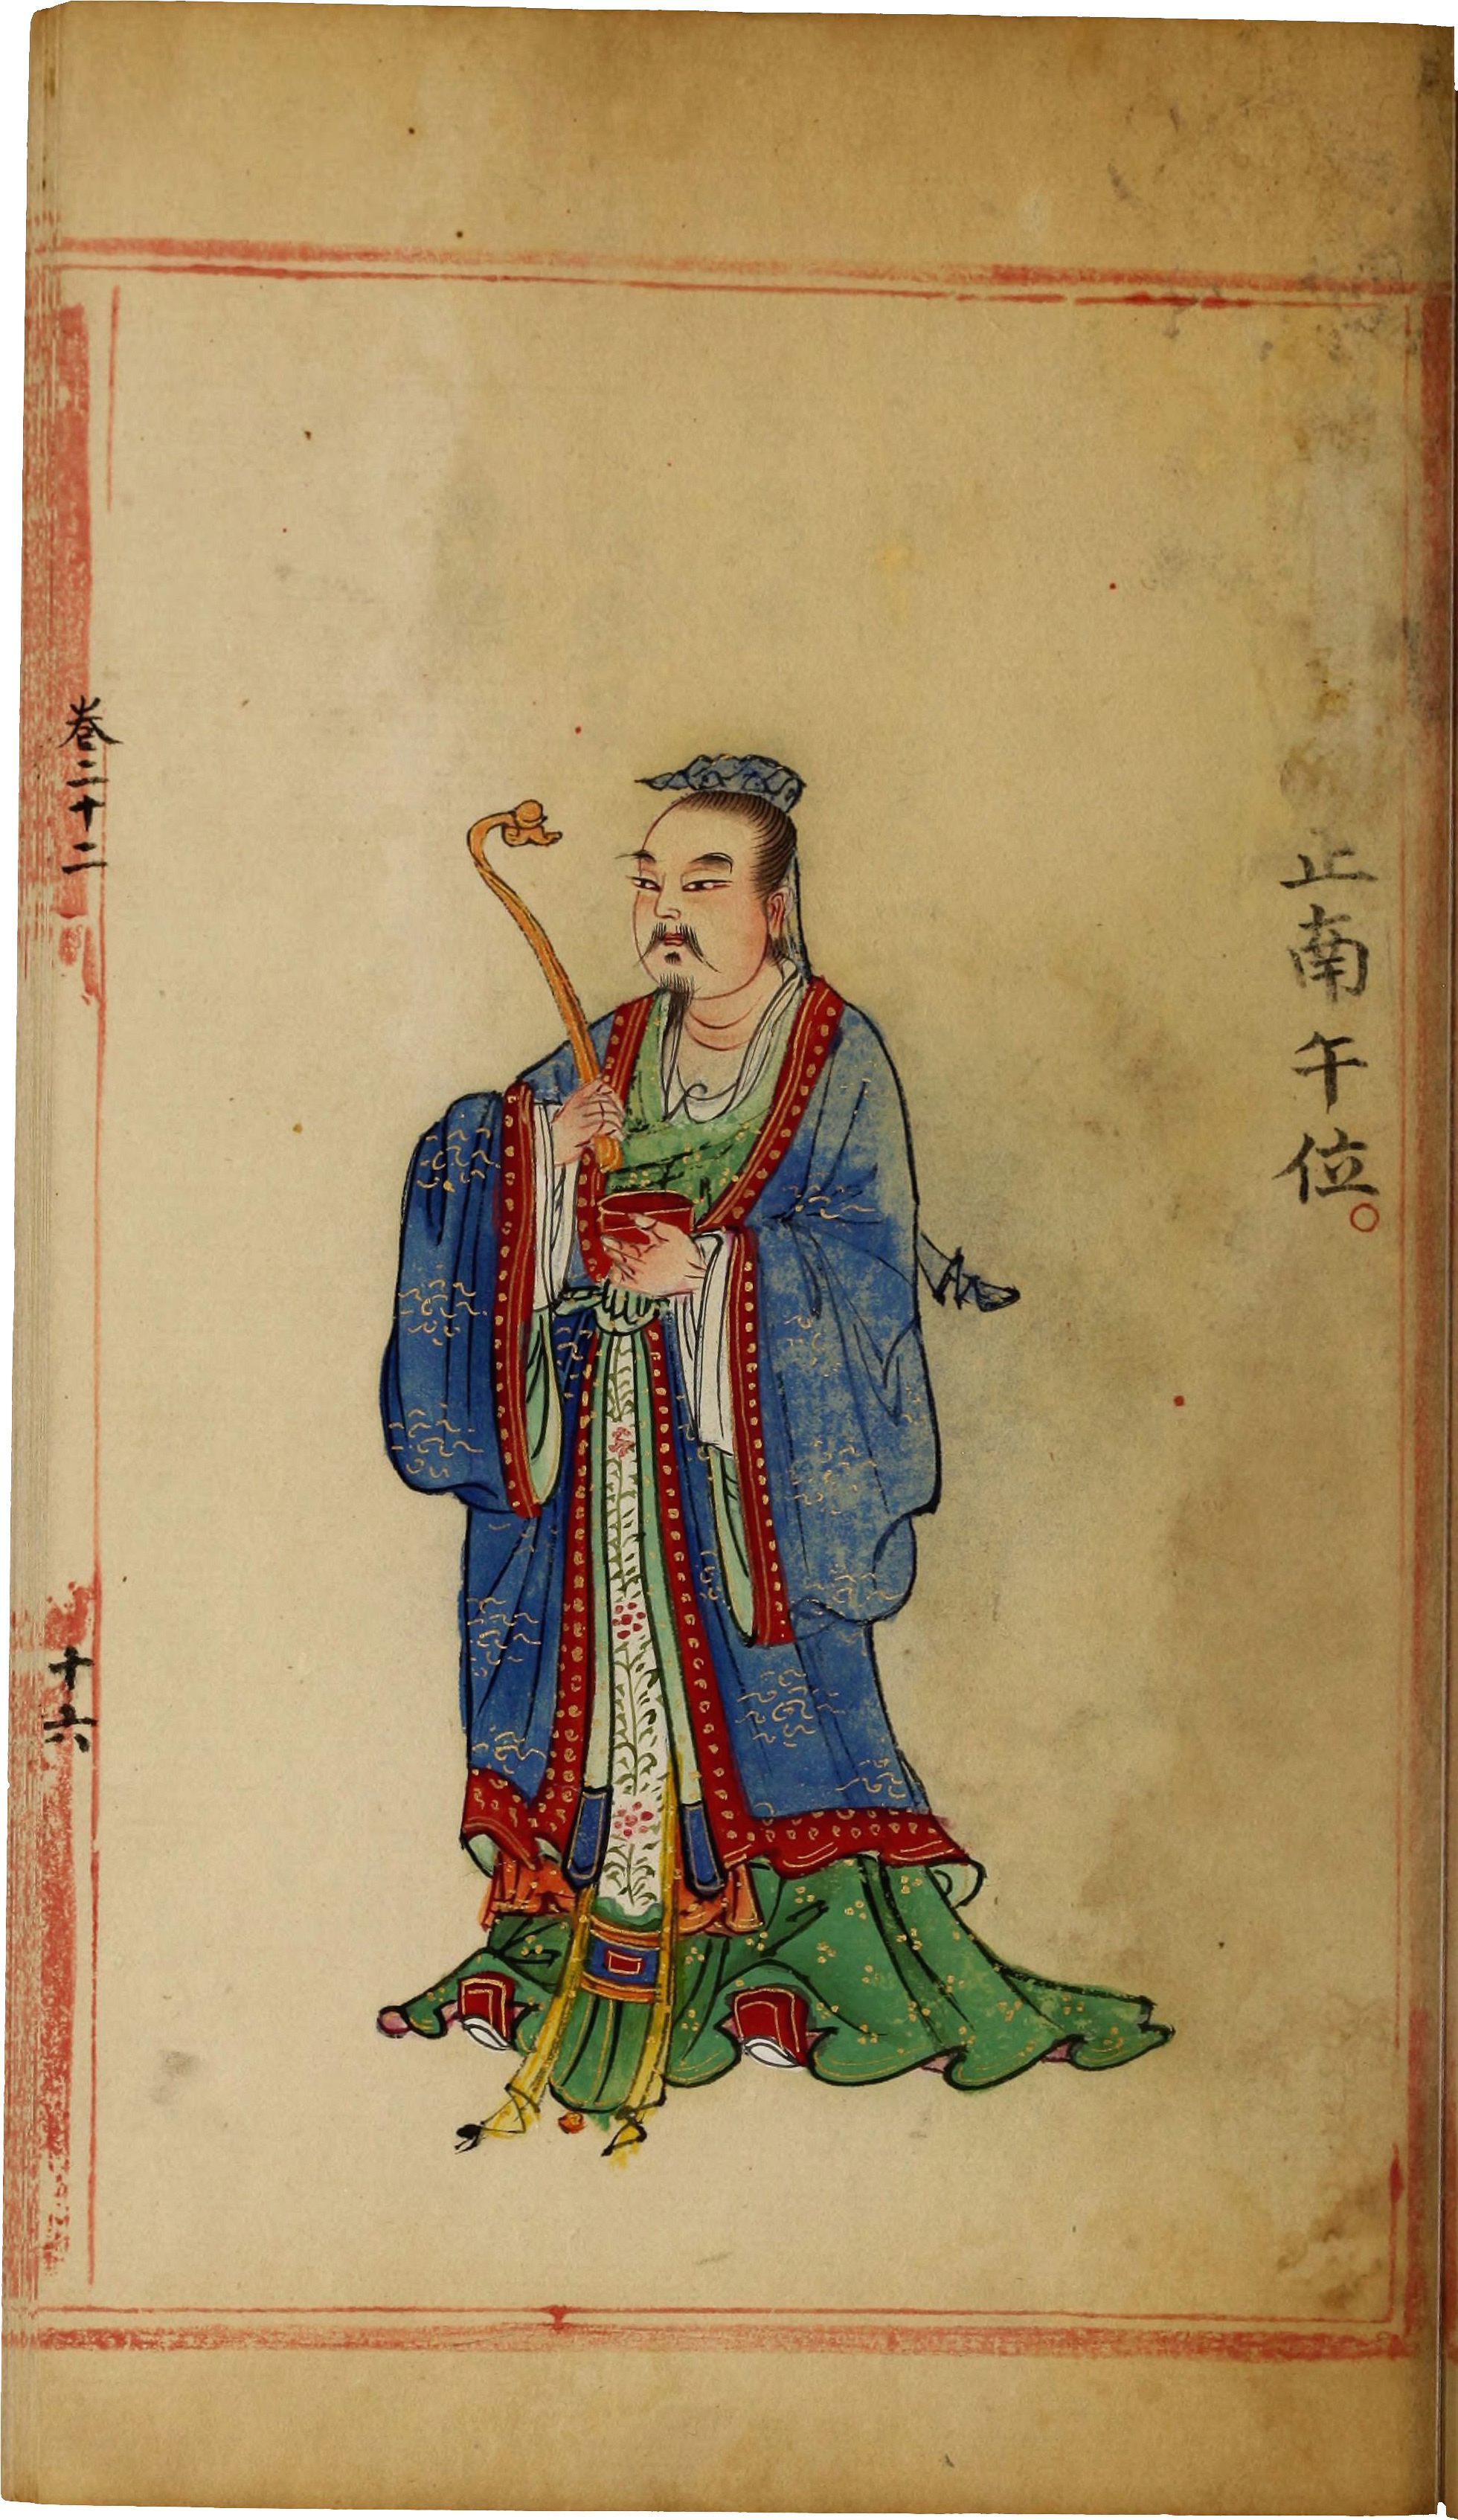 正南午位。
卷二十二
十六